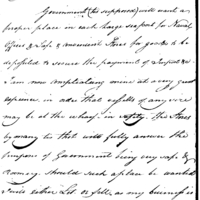 Government (tis supposed) will want a
proper place in each large seaport for Naval
Offices & Safe & convenient Stores for goods to be
deposited & secure the payment of Impost &c
I am now compleating mine at a very great
expence in order that vessells of any size
may be at the wharf in safety. the Stores
by many tis that will fully answer the
purpose of Government being very safe &
Roomy. should such a place be wanted
I will either Let or sell as my business is